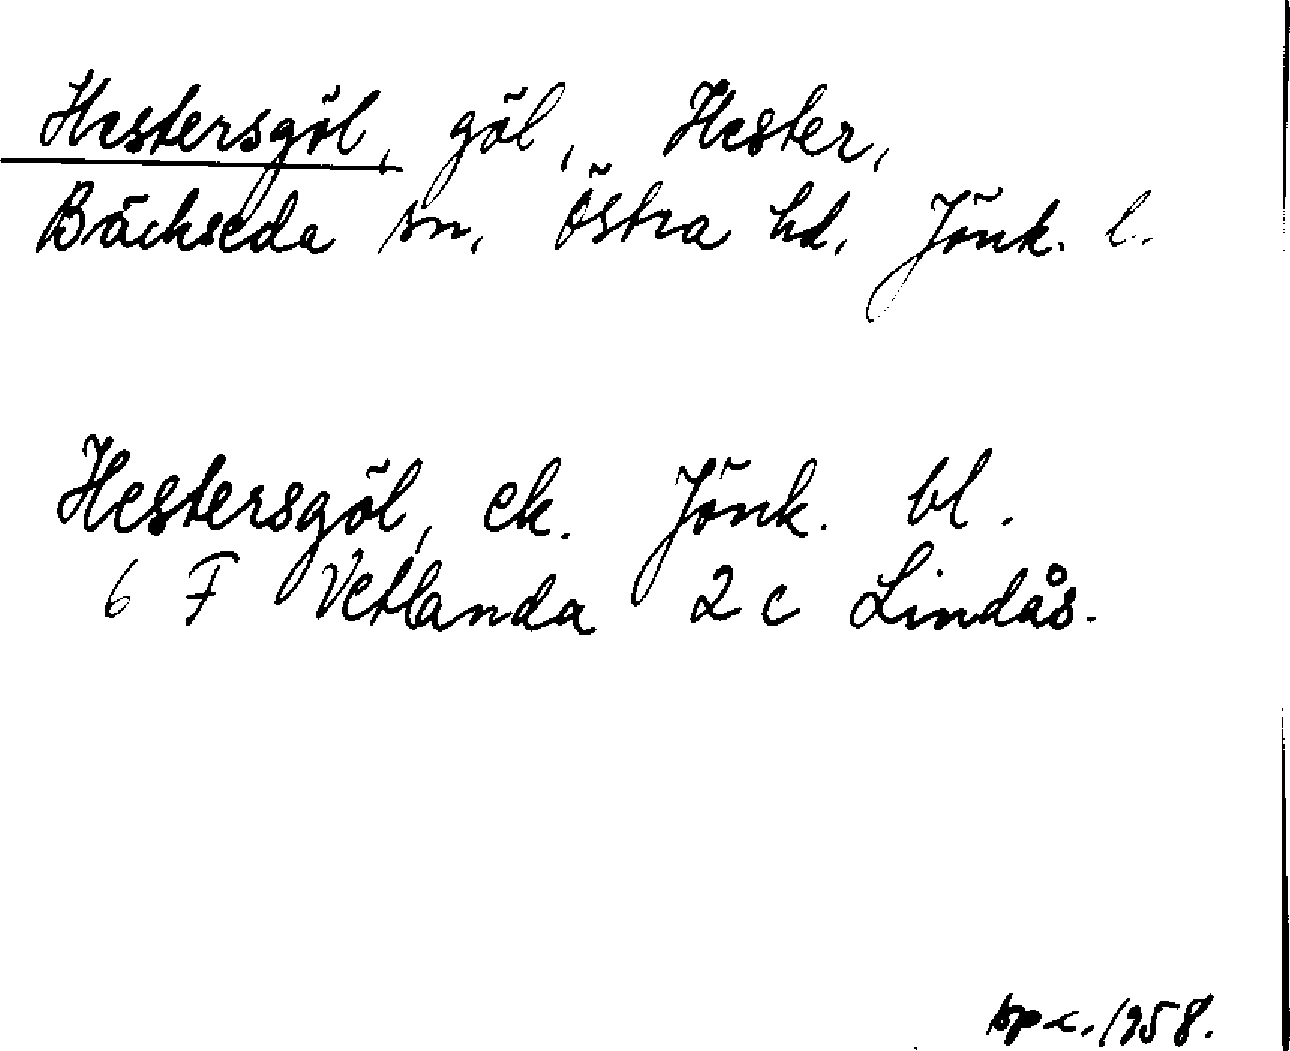 Hestersgöl, göl, Hester,
Bäckseda sn, Östra hd. Jönk. l.
Hestersgöl, ek. Jönk. bl.
6 F Vetlanda 2 c Lindås.
1958.